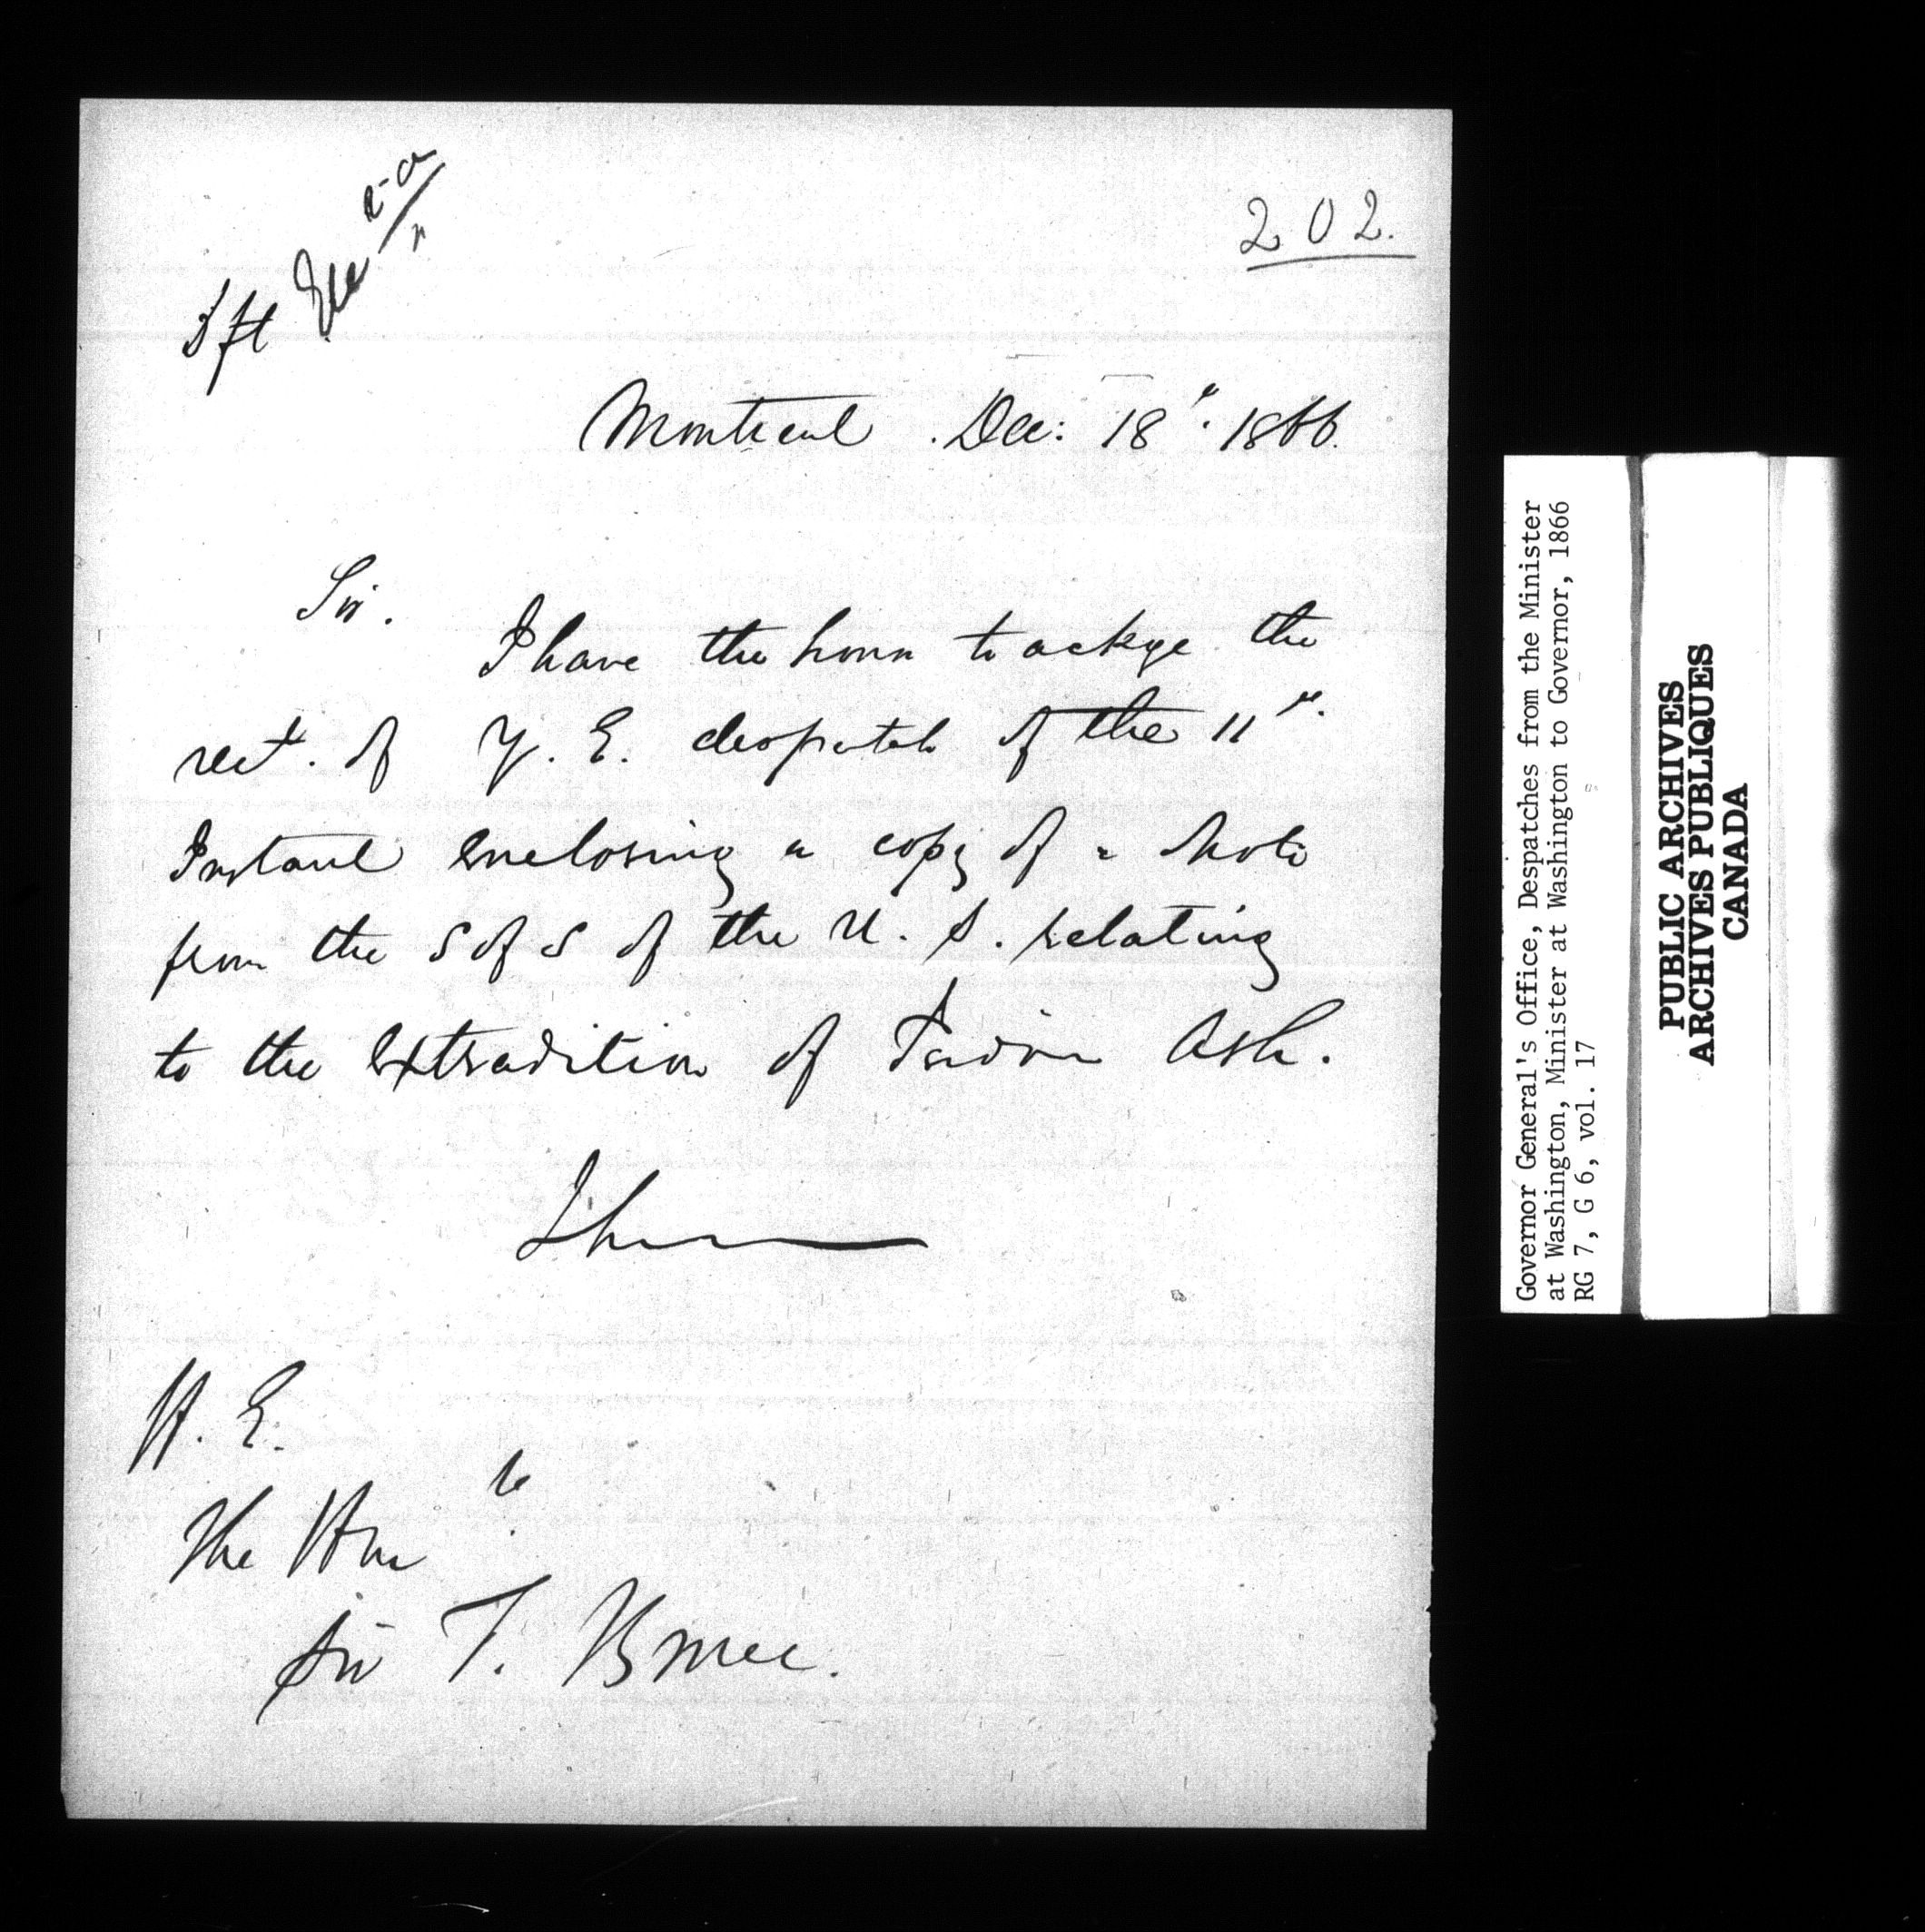 202.
Dft
Montreal. Dec: 18th. 1866.
Sir.
I have the honr to ackge the
rect. of Y. E. despatch of the 11th.
Instant enclosing a copy of a Note
from the S of S of the U. S. relating
to the extradition of Ash.
I h
H. E.
The Honble
Sir F. Bruce.
Governor General's Office, Despatches from the Minister
at Washington, Minister at Washington to Governor, 1866
RG 7, G 6, vol. 17
PUBLIC ARCHIVES
ARCHIVES PUBLIQUES
CANADA